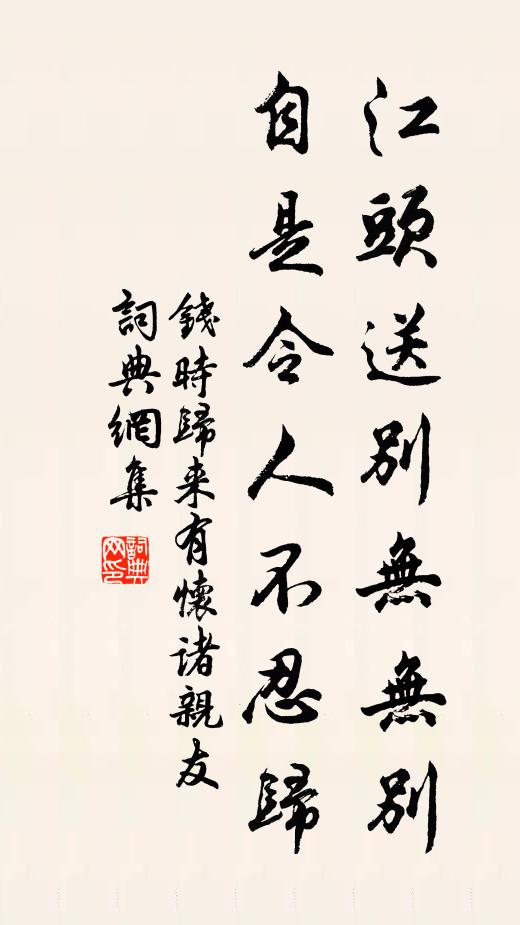 江頭送別無無別
自是令人不忍歸
錢時歸来有懷諸親友
詞典網集
詞典網印